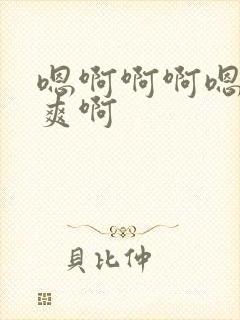 嗯啊啊啊嗯
爽啊
貝比仲